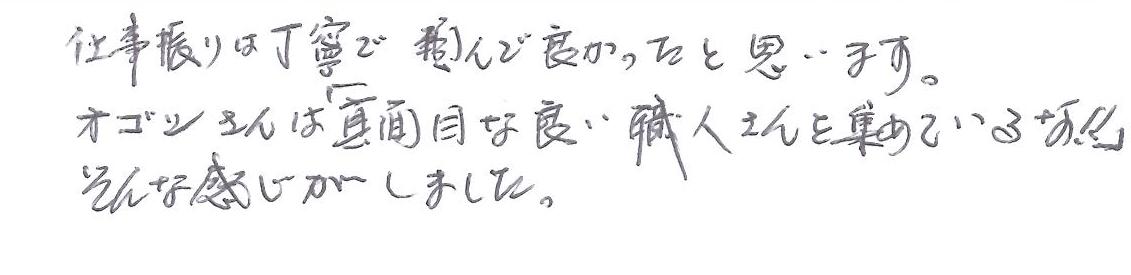 仕事振りは丁寧で 頼んで良かったと思います。
オゴシさんは「真面目な良い職人さんを集めているなぁ」
そんな感じがしました。